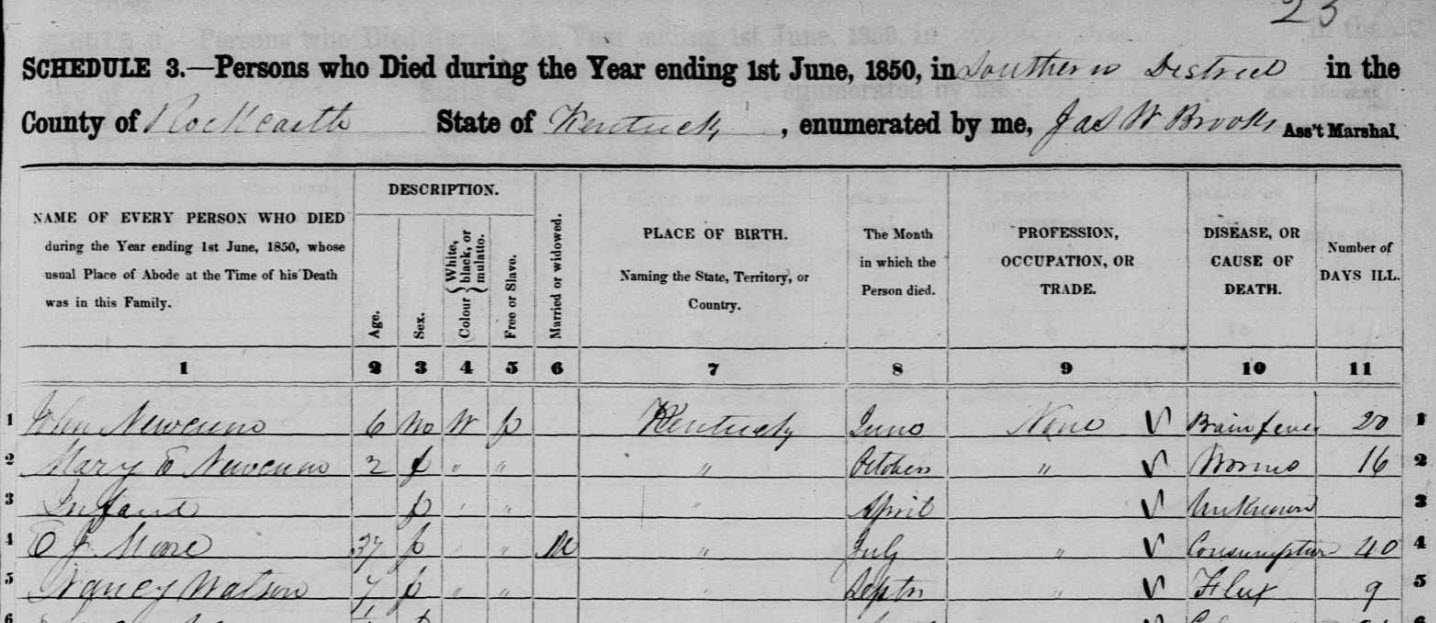 23
SCHEDULE 3.—Persons who Died during the Year ending 1st June, 1850, in Southern District in the
County of Rockcastle State of Kentucky, enumerated by me, Jas W Brooks Ass't Marshal.
NAME OF EVERY PERSON WHO DIED
during the Year ending 1st June, 1850, whose
usual Place of Abode at the Time of his Death
was in this Family.
DESCRIPTION.
Age.
Sex.
Colour { White, black, or mulatto.
Free or Slave.
Married or widowed.
PLACE OF BIRTH.
Naming the State, Territory, or
Country.
The Month
in which the
Person died.
PROFESSION,
OCCUPATION, OR
TRADE.
DISEASE, OR
CAUSE OF
DEATH.
Number of
DAYS ILL.
1 2 3 4 5 6 7 8 9 10 11
1 John Newcum 6 W f Kentucky June None Brain fever 20 1
2 Mary E Newcum 2 f " " " October " Worms 16 2
3 Infant f " " April Unknown 3
4 E J. 37 f " " M " July " Consumption 40 4
5 Nancy Watson 7 f " " " Septr " Flux 9 5
6 6